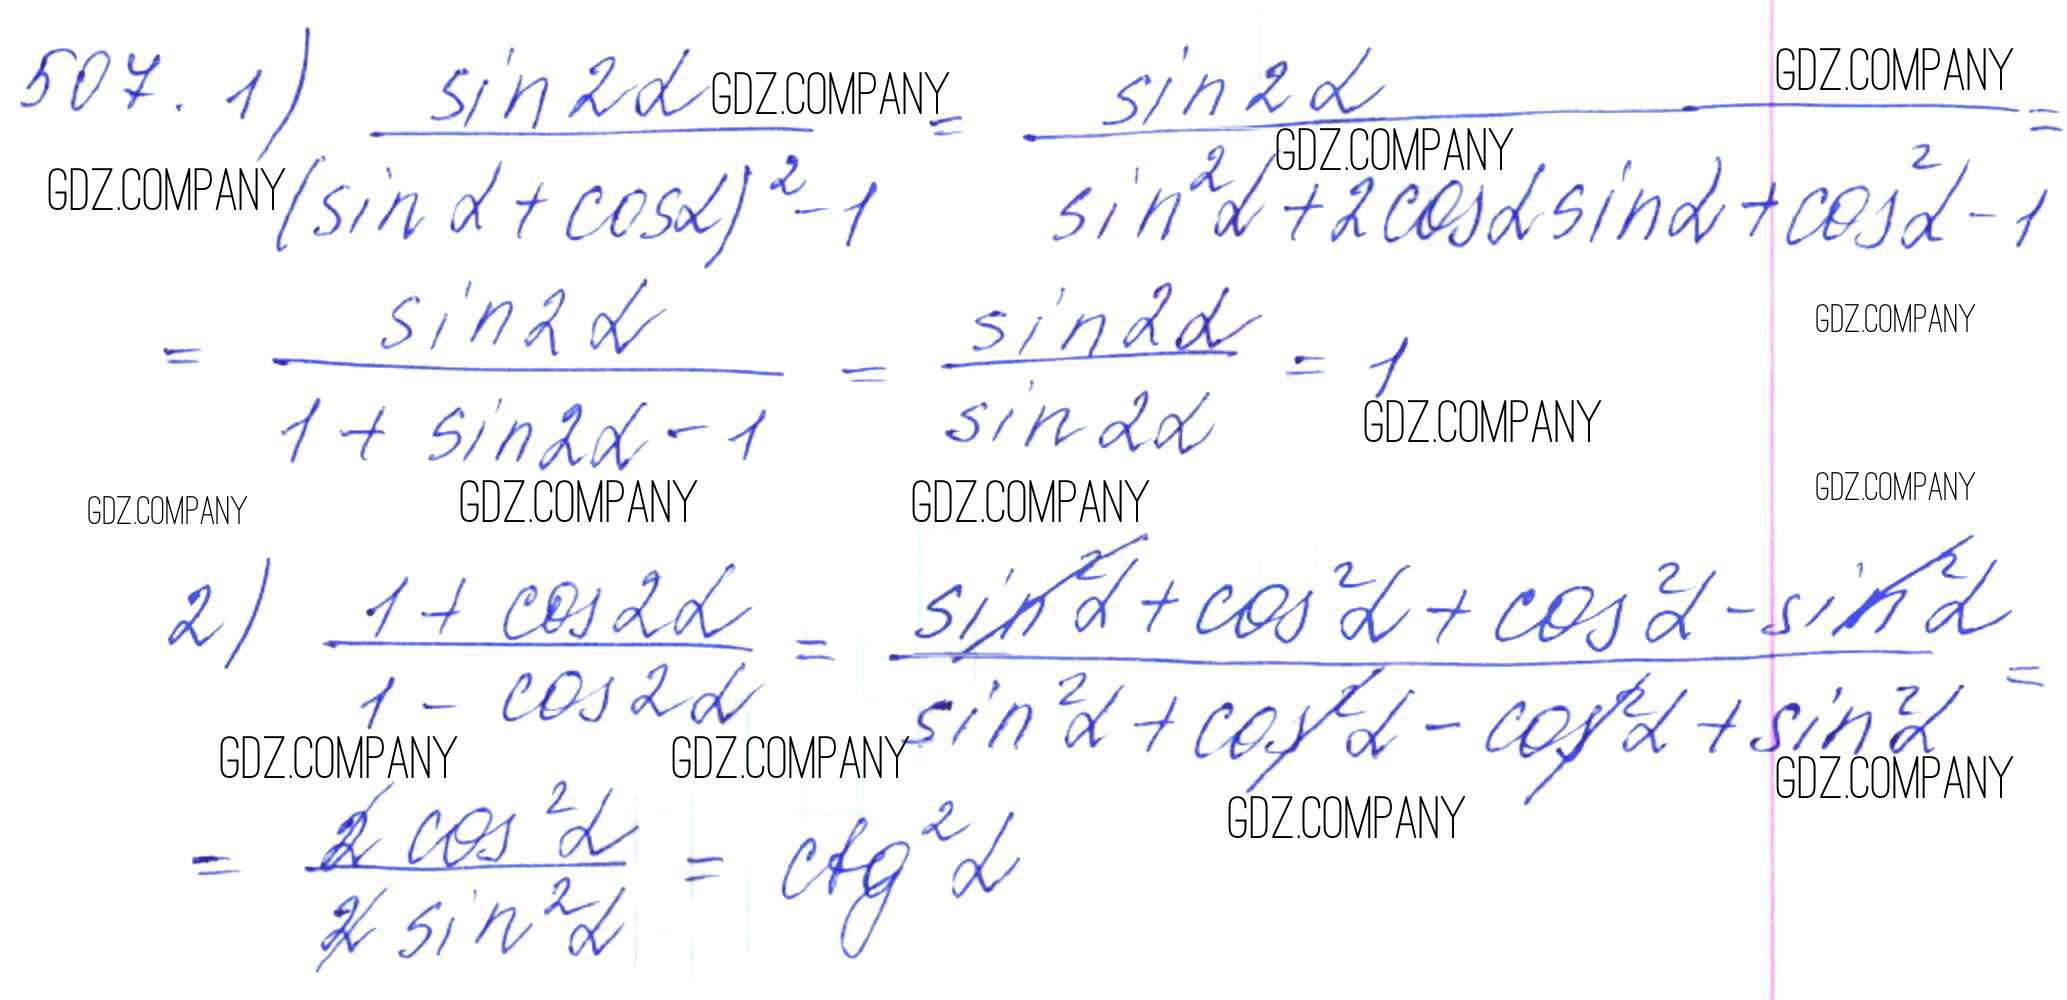 507. 1) sin2α / ((sin α + cosα)² - 1) = sin2α / (sin²α + 2cosα sinα + cos²α - 1) =
= sin2α / (1 + sin2α - 1) = sin2α / sin2α = 1
2) (1 + cos2α) / (1 - cos2α) = (sin²α + cos²α + cos²α - sin²α) / (sin²α + cos²α - cos²α + sin²α) =
= 2 cos²α / 2 sin²α = ctg²α
GDZ.COMPANY
GDZ.COMPANY
GDZ.COMPANY
GDZ.COMPANY
GDZ.COMPANY
GDZ.COMPANY
GDZ.COMPANY
GDZ.COMPANY
GDZ.COMPANY
GDZ.COMPANY
GDZ.COMPANY
GDZ.COMPANY
GDZ.COMPANY
GDZ.COMPANY